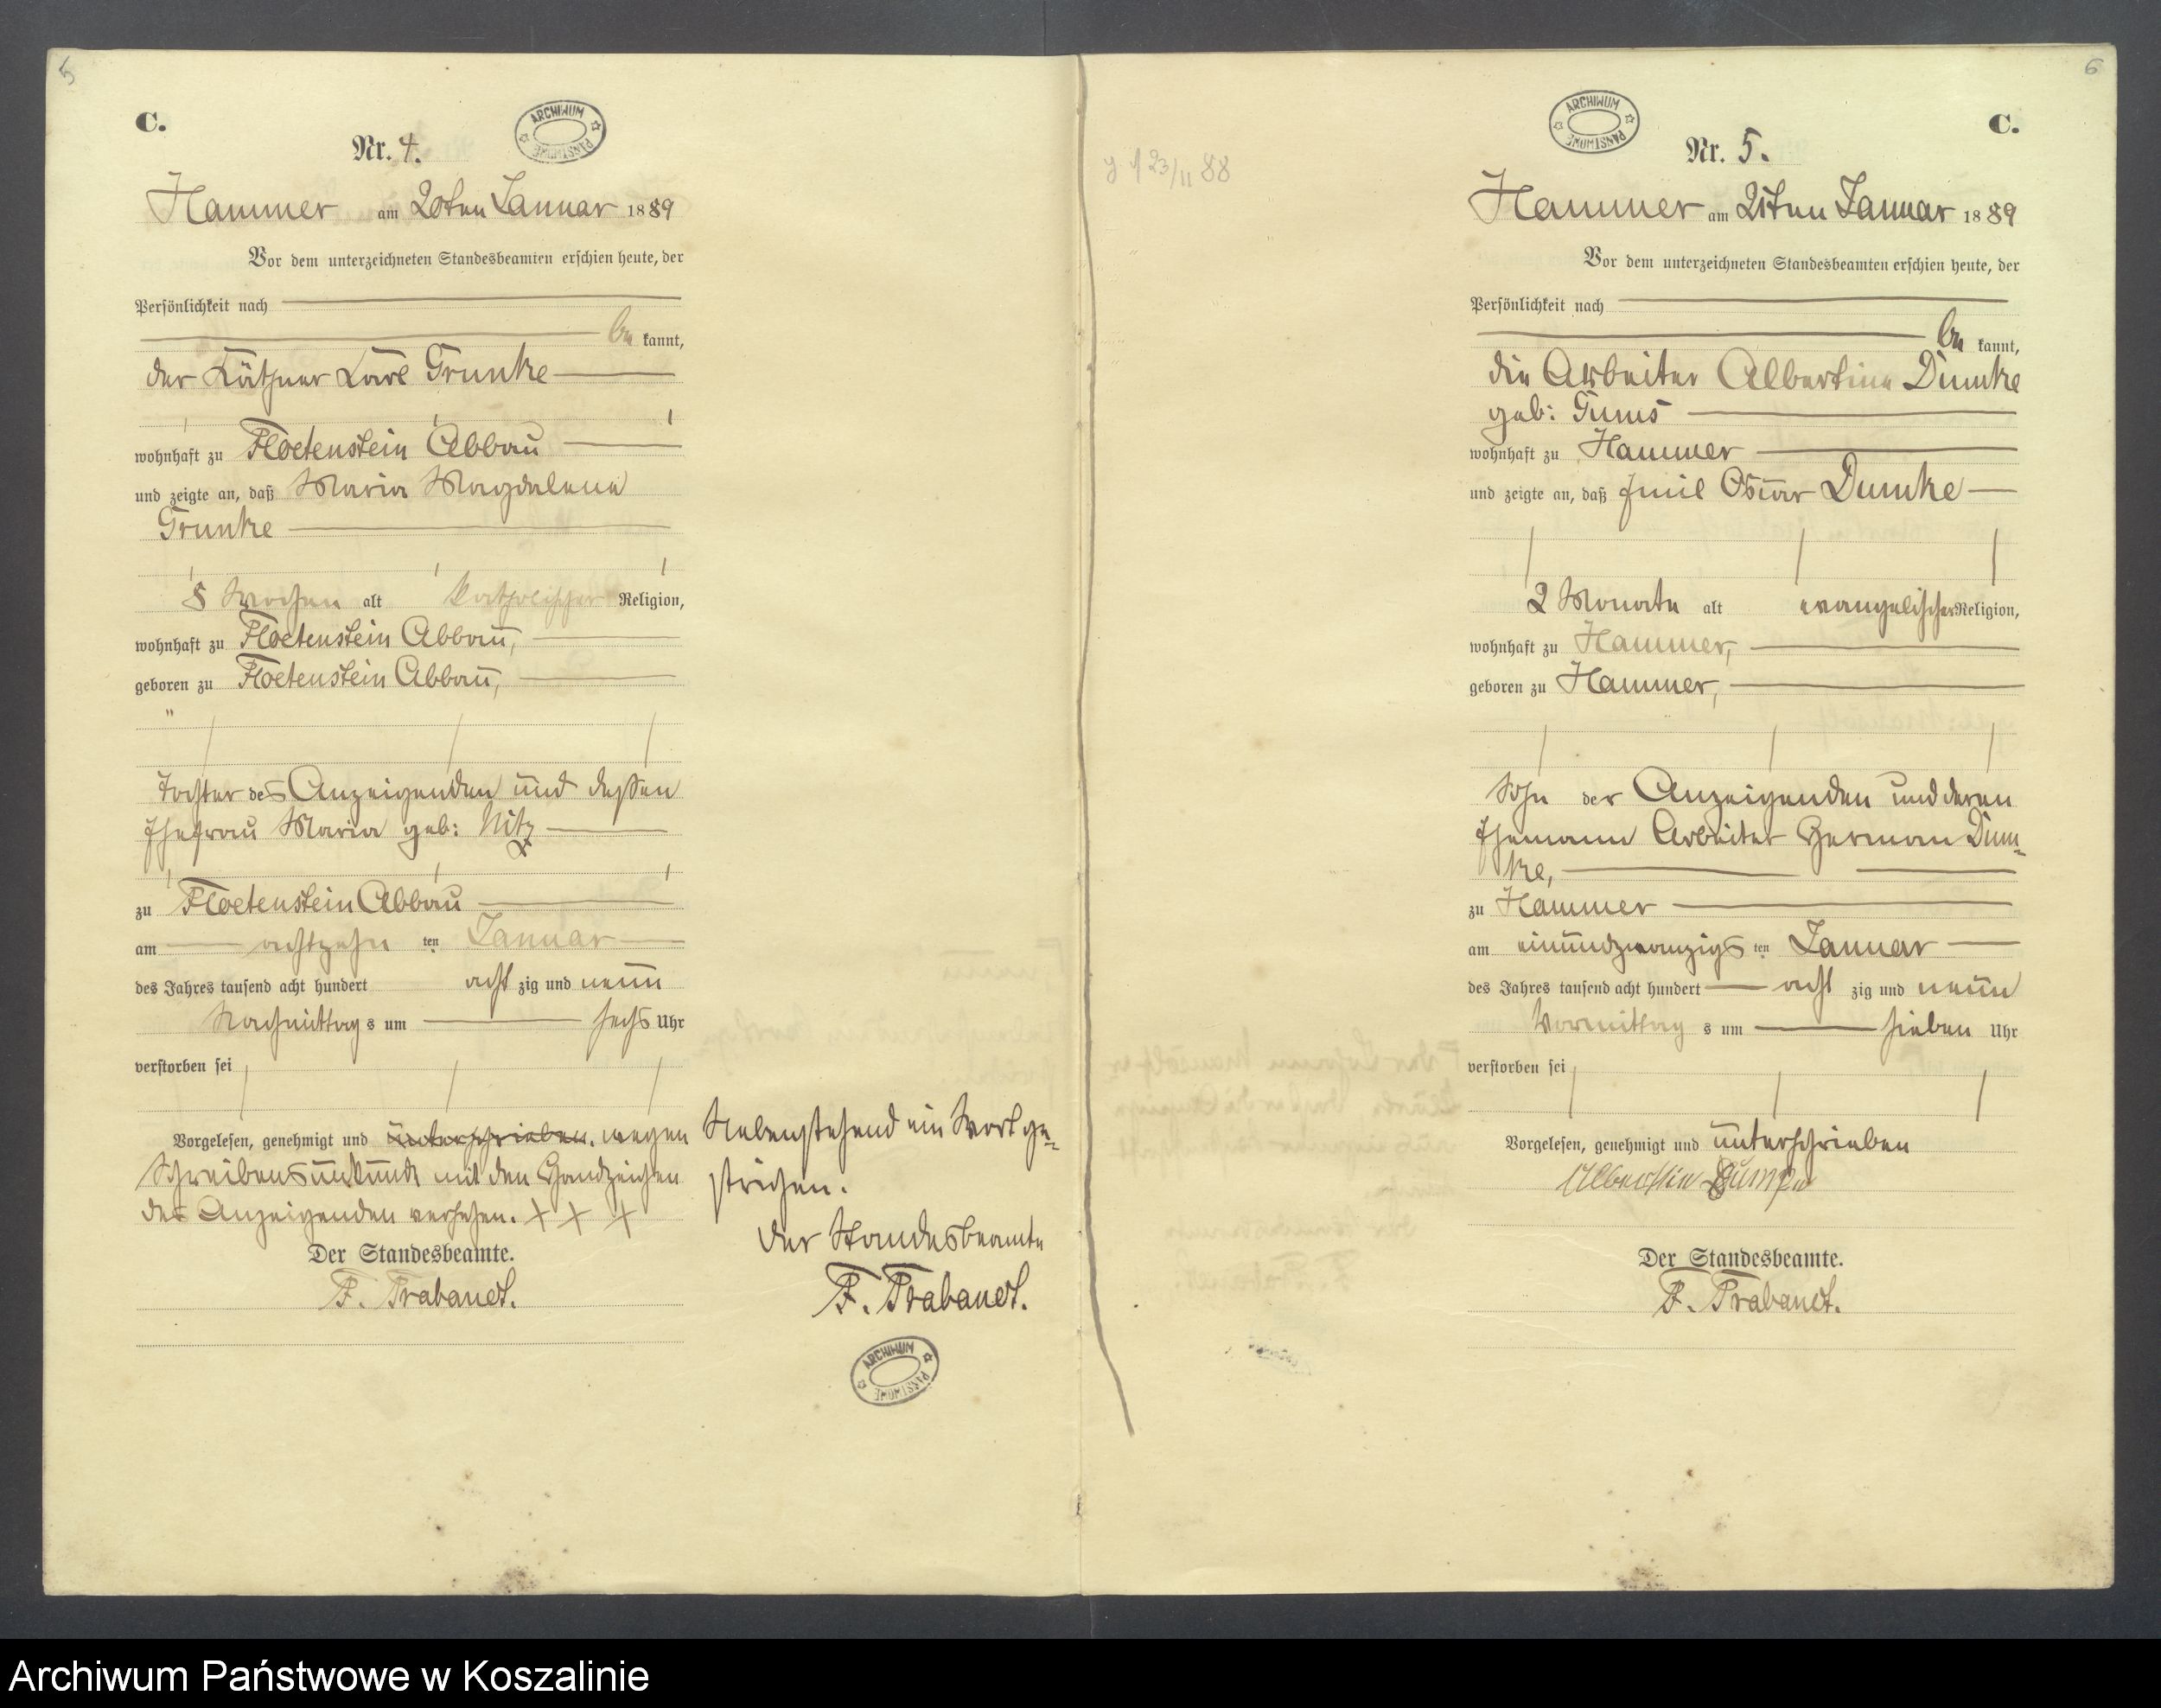 5
C.
Nr. 4.
ARCHIWUM PAŃSTWOWE
Hammer am 20ten Januar 1889
Vor dem unterzeichneten Standesbeamten erschien heute, der
Persönlichkeit nach
be kannt,
der Käthner Karl Grunke
wohnhaft zu Floetenstein Abbau
und zeigte an, daß Maria Magdalena
Grunke
8 Wochen alt katholischer Religion,
wohnhaft zu Floetenstein Abbau,
geboren zu Floetenstein Abbau,
"
Tochter des Anzeigenden und dessen
Ehefrau Maria geb: Nitz
zu Floetenstein Abbau
am achtzehn ten Januar
des Jahres tausend acht hundert acht zig und neun
Nachmittag s um sechs Uhr
verstorben sei
Vorgelesen, genehmigt und unterschrieben. wegen
Schreibensunkunde mit den Handzeichen
des Anzeigenden versehen. + + +
Der Standesbeamte.
F. Trabandt.
Nebenstehend ein Wort ge-
strichen.
Der Standesbeamte
F. Trabandt.
ARCHIWUM PAŃSTWOWE
6
C.
23/11 88
ARCHIWUM PAŃSTWOWE
Nr. 5.
Hammer am 21ten Januar 1889
Vor dem unterzeichneten Standesbeamten erschien heute, der
Persönlichkeit nach
be kannt,
die Arbeiter Albertine Dumke
geb:
wohnhaft zu Hammer
und zeigte an, daß Emil Oscar Dumke
2 Monate alt evangelischer Religion,
wohnhaft zu Hammer,
geboren zu Hammer,
Sohn der Anzeigenden und deren
Ehemann Arbeiter Herman Dum-
ke,
zu Hammer
am einundzwanzigs ten Januar
des Jahres tausend acht hundert acht zig und neun
Vormittag s um sieben Uhr
verstorben sei
Vorgelesen, genehmigt und unterschrieben
Der Standesbeamte.
F. Trabandt.
Archiwum Państwowe w Koszalinie